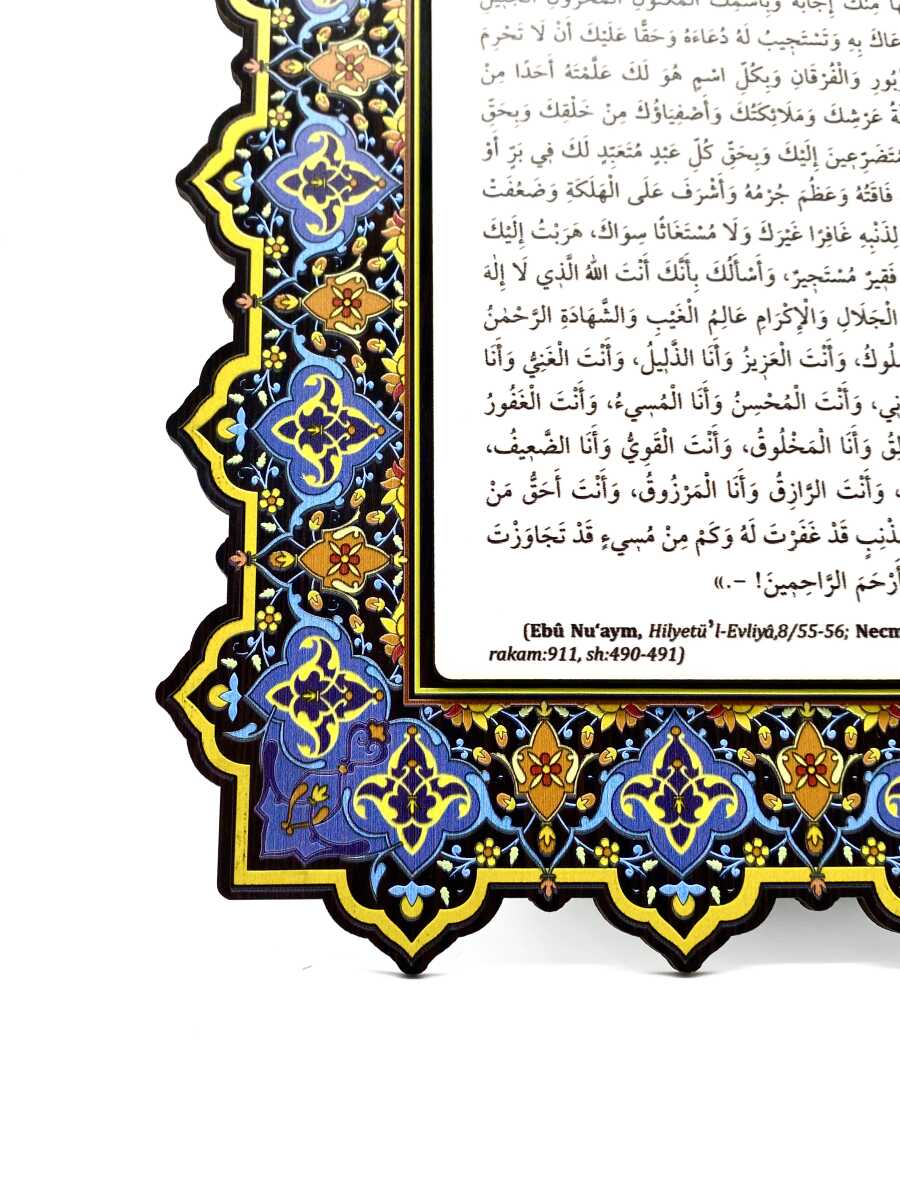 مِنْكَ إِجَابَةً وَبِاسْمِكَ الْمَكْنُونِ الْمَخْزُونِ الْجَلِيلِ
بِهِ وَتَسْتَجِيبُ لَهُ دُعَاءَهُ وَحَقًّا عَلَيْكَ أَنْ لَا تَحْرِمَ
وَالْفُرْقَانِ وَبِكُلِّ اسْمٍ هُوَ لَكَ عَلَّمْتَهُ أَحَدًا مِنْ
عَرْشِكَ وَمَلَائِكَتُكَ وَأَصْفِيَاؤُكَ مِنْ خَلْقِكَ وَبِحَقِّ
إِلَيْكَ وَبِحَقِّ كُلِّ عَبْدٍ مُتَعَبِّدٍ لَكَ فِي بَرٍّ أَوْ
فَاقَتُهُ وَعَظُمَ جُرْمُهُ وَأَشْرَفَ عَلَى الْهَلَكَةِ وَضَعُفَتْ
لِذَنْبِهِ غَافِرًا غَيْرَكَ وَلَا مُسْتَغَاثًا سِوَاكَ، هَرَبْتُ إِلَيْكَ
فَقِيرٌ مُسْتَجِيرٌ، وَأَسْأَلُكَ بِأَنَّكَ أَنْتَ اللهُ الَّذِي لَا إِلٰهَ
الْجَلَالِ وَالْإِكْرَامِ عَالِمُ الْغَيْبِ وَالشَّهَادَةِ الرَّحْمٰنُ
وَأَنْتَ الْعَزِيزُ وَأَنَا الذَّلِيلُ، وَأَنْتَ الْغَنِيُّ وَأَنَا
وَأَنْتَ الْمُحْسِنُ وَأَنَا الْمُسِيءُ، وَأَنْتَ الْغَفُورُ
وَأَنَا الْمَخْلُوقُ، وَأَنْتَ الْقَوِيُّ وَأَنَا الضَّعِيفُ،
وَأَنْتَ الرَّازِقُ وَأَنَا الْمَرْزُوقُ، وَأَنْتَ أَحَقُّ مَنْ
قَدْ غَفَرْتَ لَهُ وَكَمْ مِنْ مُسِيءٍ قَدْ تَجَاوَزْتَ
أَرْحَمَ الرَّاحِمِينَ! –.»
(Ebû Nu‘aym, Hilyetü’l-Evliyâ,8/55-56; Necm
rakam:911, sh:490-491)